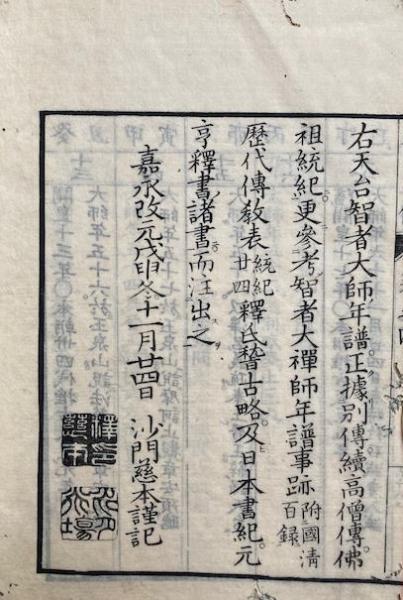 右天台智者大師年譜正據別傳續高僧傳佛
祖統紀更參考智者大禪師年譜事跡附國清百錄
歷代傳教表統紀廿四釋氏稽古略及日本書紀元
亨釋書諸書而汪出之
嘉永改元戊申冬十一月廿四日 沙門慈本謹記